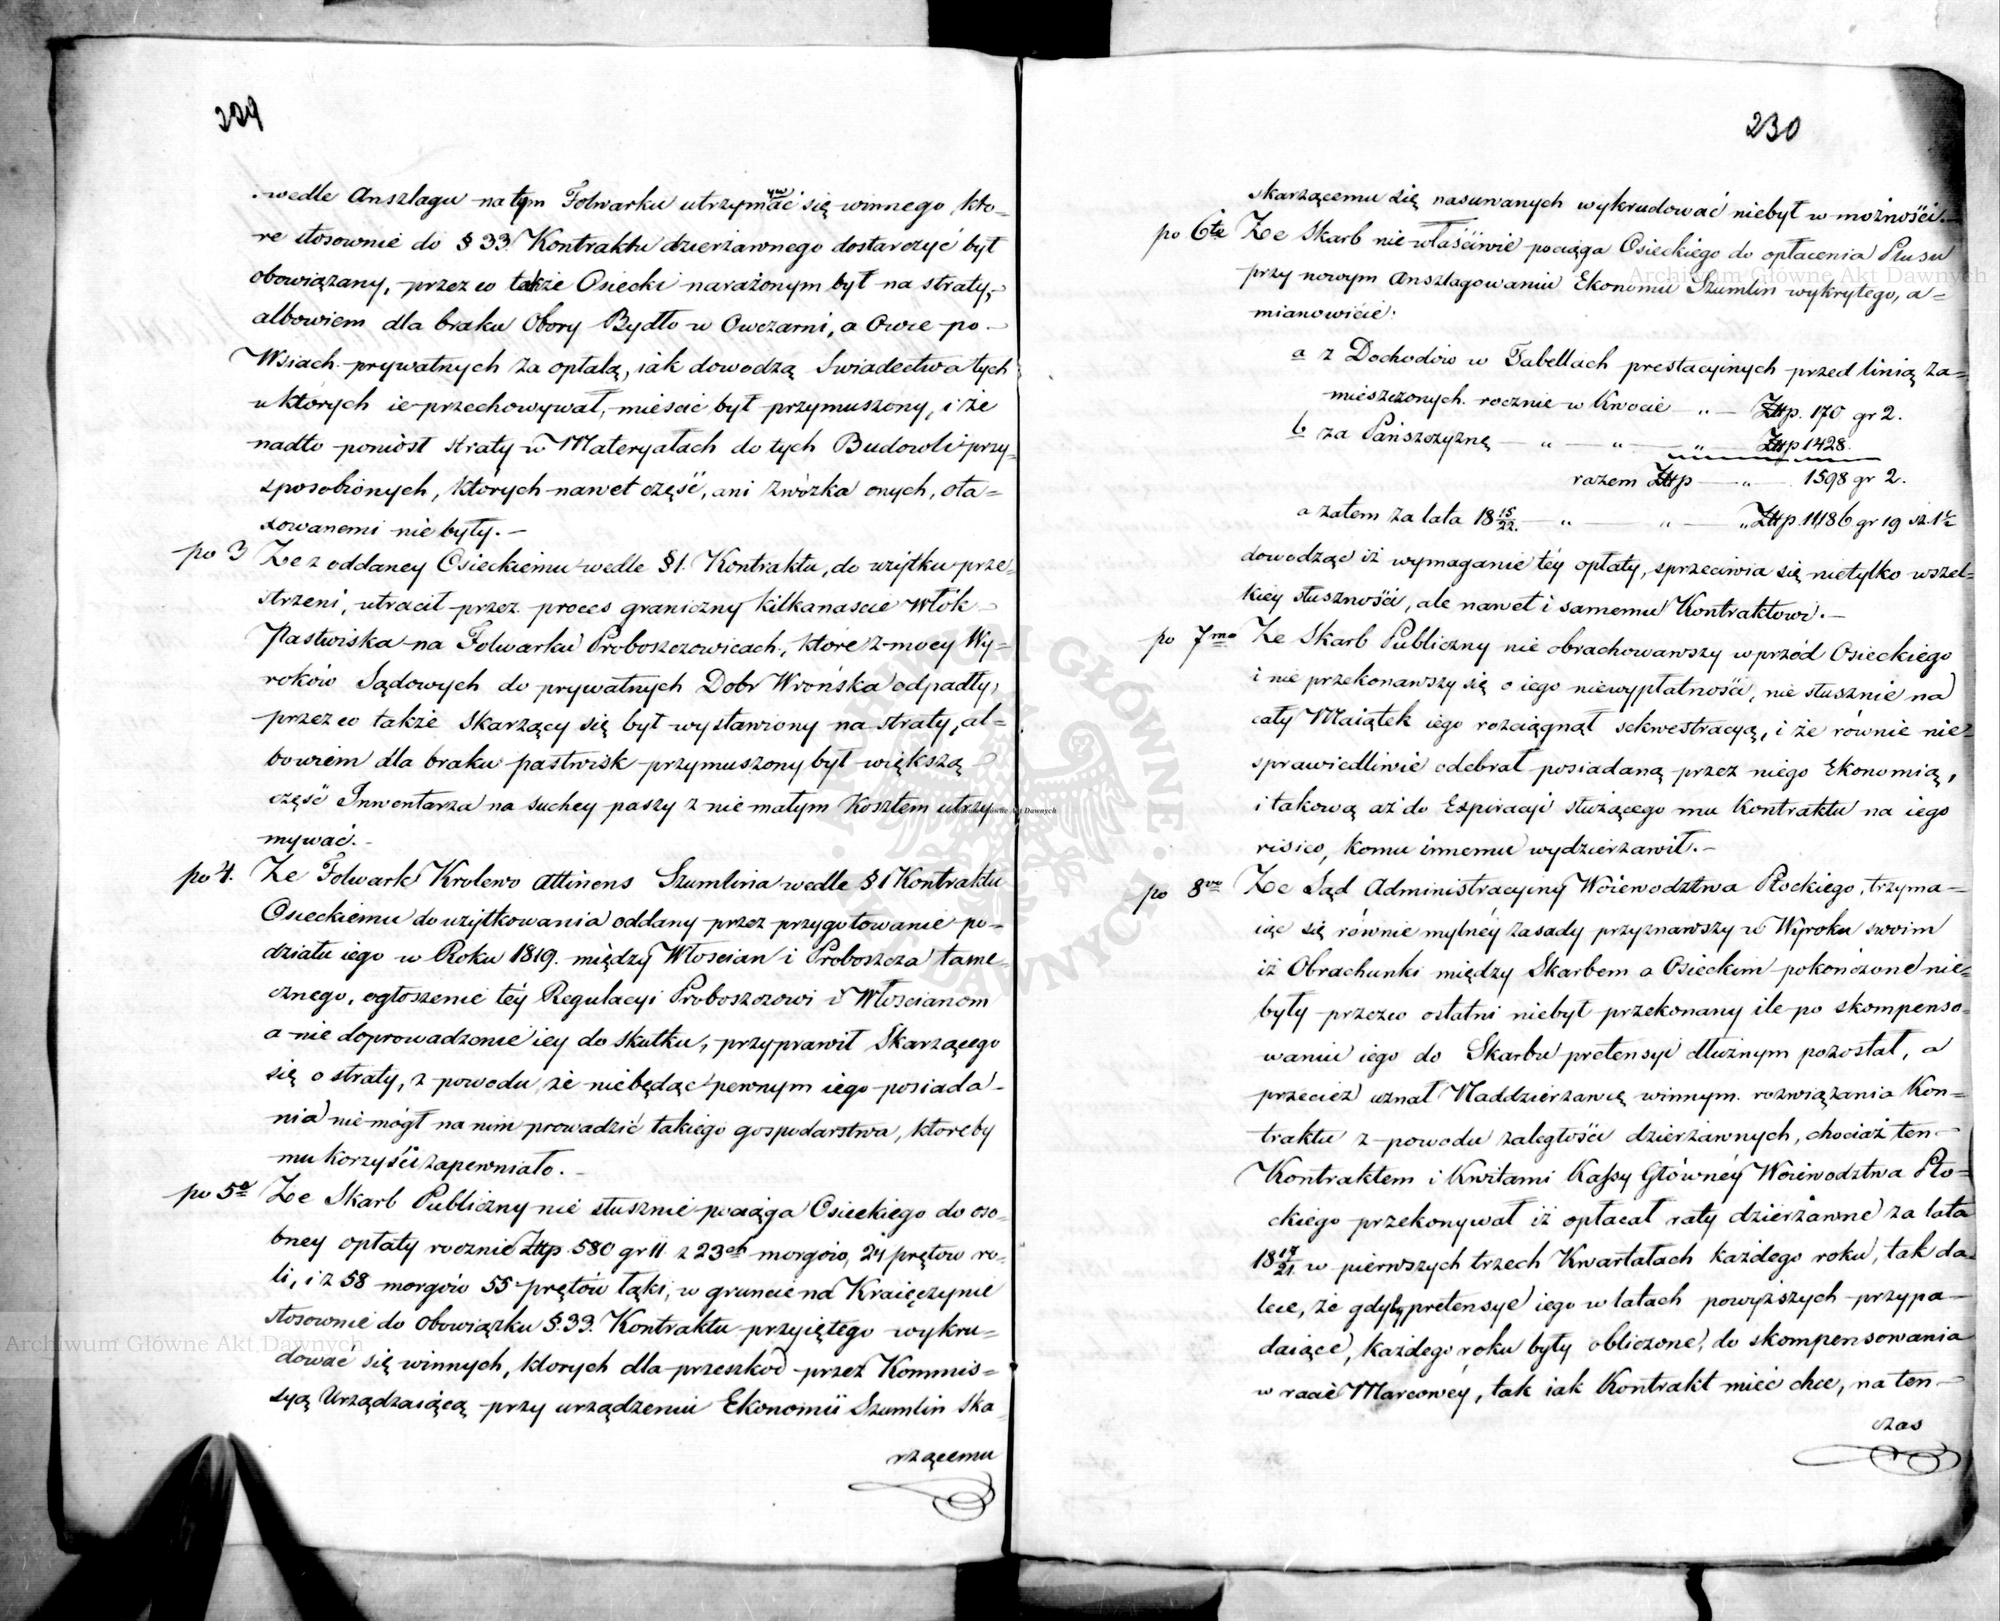 229
wedle Anszlagu na tym Folwarku utrzymywać się winnego kto-
re stosownie do § 33. Kontraktu dzierżawnego dostarczyć był
obowiązany, przez co także Osiecki narażonym był na straty,
albowiem dla braku Obory Bydło w Owczarni, a Owce po
Wsiach prywatnych za opłatą, iak dowodzą Swiadectwa tych
u których ie przechowywał, mieścić był przymuszony, i że
nadto poniósł straty w Materyałach do tych Budowli przy-
sposobionych, których nawet część, ani zwózka onych, ota-
xowanemi nie były. –
po 3 Że z oddaney Osieckiemu wedle § 1. Kontraktu, do użytku prze-
strzeni, utracił przez proces graniczny kilkanaście Włók
Pastwiska na Folwarku Proboszczewicach, które z mocy Wy-
roków Sądowych do prywatnych Dobr Wrońska odpadły,
przez co także Skarżący się był wystawiony na straty, al-
bowiem dla braku pastwisk przymuszony był większą
część Inwentarza na suchey paszy z nie małym Kosztem utrzy-
mywać. –
po 4. Że Folwark Krolewo attinens Szumlina wedle § 1 Kontraktu
Osieckiemu do użytkowania oddany przez przygotowanie po-
działu iego w Roku 1819. między Włościan i Proboszcza tame-
cznego, ogłoszenie téy Regulacyi Proboszczowi i Włościanom
a nie doprowadzenie iey do skutku, przyprawił Skarżącego
się o straty, z powodu że niebędąc pewnym iego posiada-
nia nie mógł na nim prowadzić takiego gospodarstwa, ktoreby
mu korzyści zapewniało. –
po 5e Że Skarb Publiczny nie słusznie pociąga Osieckiego do oso-
bney opłaty rocznie Złłp. 580 gr 11 z 23ch morgów, 24 prętów ro-
li, i z 58 morgów 55 prętów łąki, w gruncie na Kraięczynie
stosownie do obowiązku § 33. Kontraktu przyiętego wykru-
dować się winnych, ktorych dla przeszkod przez Kommis-
syą Urządzaiącą przy urządzeniu Ekonomii Szumlin ska-
rżącemu
230
skarżącemu się nasuwanych wykrudować niebył w możności. –
po 6te Że Skarb nie właściwie pociąga Osieckiego do opłacenia Plusu
przy nowym Anszlagowaniu Ekonomii Szumlin wykrytego, a-
mianowicie:
a z Dochodów w Tabellach prestacyinych przed linią za-
mieszczonych. rocznie w kwocie – „ – Złłp. 170 gr 2.
b za Pańszczyznę – „ – „ – „ – Złłp 1428.
razem Złłp – „ – 1598 gr 2.
a zatem za lata 18 15/22. – „ – „ – „ Złłp. 11186 gr 19 sz. 1½
dowodząc iż wymaganie téy opłaty, sprzeciwia się nietylko wszel-
kiey słuszności, ale nawet i samemu Kontraktowi. –
po 7mo Że Skarb Publiczny nie obrachowawszy wprzód Osieckiego
i nie przekonawszy się o iego niewypłatności, nie słusznie na
cały Maiątek iego rozciągnął sekwestracyą, i że równie nie-
sprawiedliwie odebrał posiadaną przez niego Ekonomią,
i takową aż do Expiracyi służącego mu Kontraktu na iego
risico, komu innemu wydzierżawił. –
po 8vo Że Sąd Administracyiny Woiewodztwa Płockiego, trzyma-
iąc się równie mylnéy zasady przyznawszy w Wyroku swoim
iż Obrachunki między Skarbem a Osieckim pokończone nie-
były przezco ostatni niebył przekonany ile po skompenso-
waniu iego do Skarbu pretensyi dłużnym pozostał, a
przecież uznał Naddzierżawcę winnym rozwiązania Kon-
traktu z powodu zaległości dzierżawnych, chociaż ten
Kontraktem i Kwitami Kassy Głównéy Woiewodztwa Pło-
ckiego przekonywał iż opłacał raty dzierżawne za lata
18 17/21 w pierwszych trzech Kwartałach każdego roku, tak da-
lece, że gdyby pretensye iego w latach powyższych przypa-
daiące, każdego roku były obliczone, do skompensowania
w racie Marcowéy, tak iak Kontrakt mieć chce, na ten-
czas
Archiwum Główne Akt Dawnych
Archiwum Główne Akt Dawnych